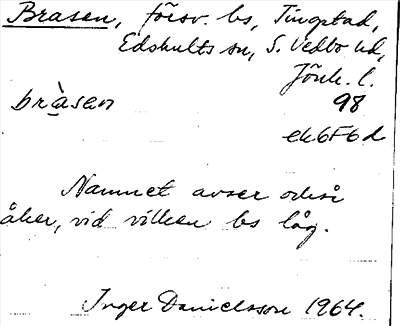 Brasen, försv. bs, Tingstad,
Edshults sn, S. Vedbo hd,
Jönk. l.
bràsen 98
ek6F6d
Namnet avser också
åker, vid vilken bs låg.
Inger Danielsson 1964.